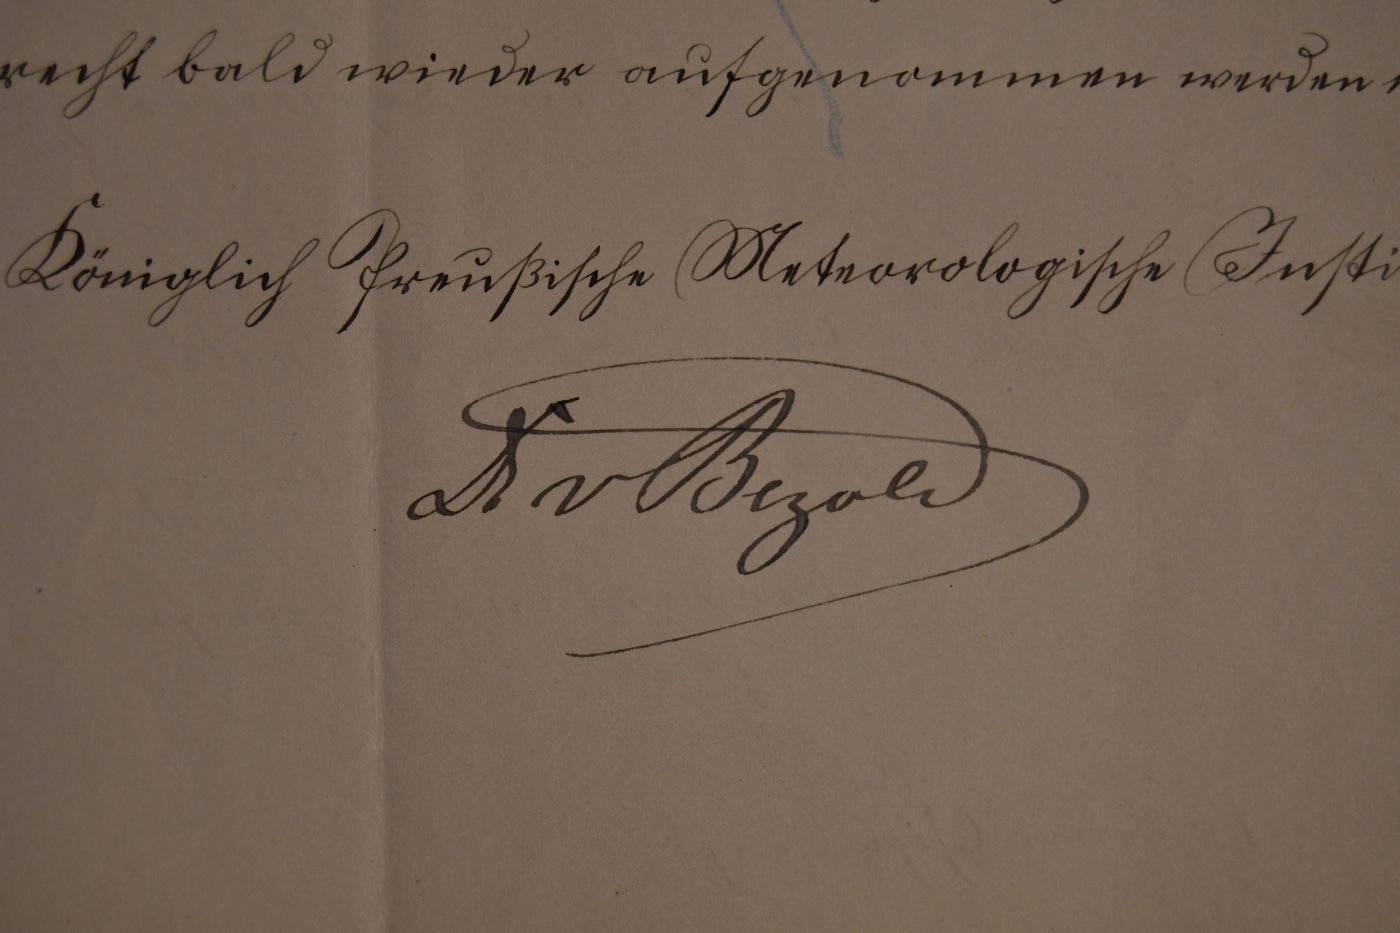 recht bald wieder aufgenommen werden
Königlich Preußische Meteorologische Insti
Dr v Bezold